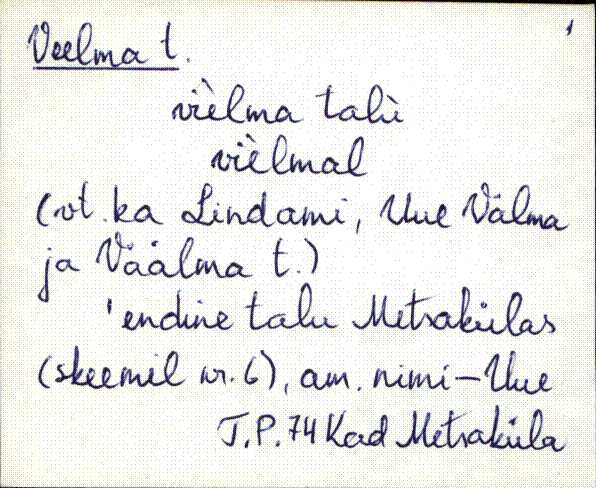 1
Veelma t.
vièlma talù
vièlmal
(vt. ka Lindami, Uue Välma
ja Väälma t.)
'endine talu Metsakülas
(skeemil nr. 6), am. nimi - Uue
T.P. 74 Kad Metsaküla